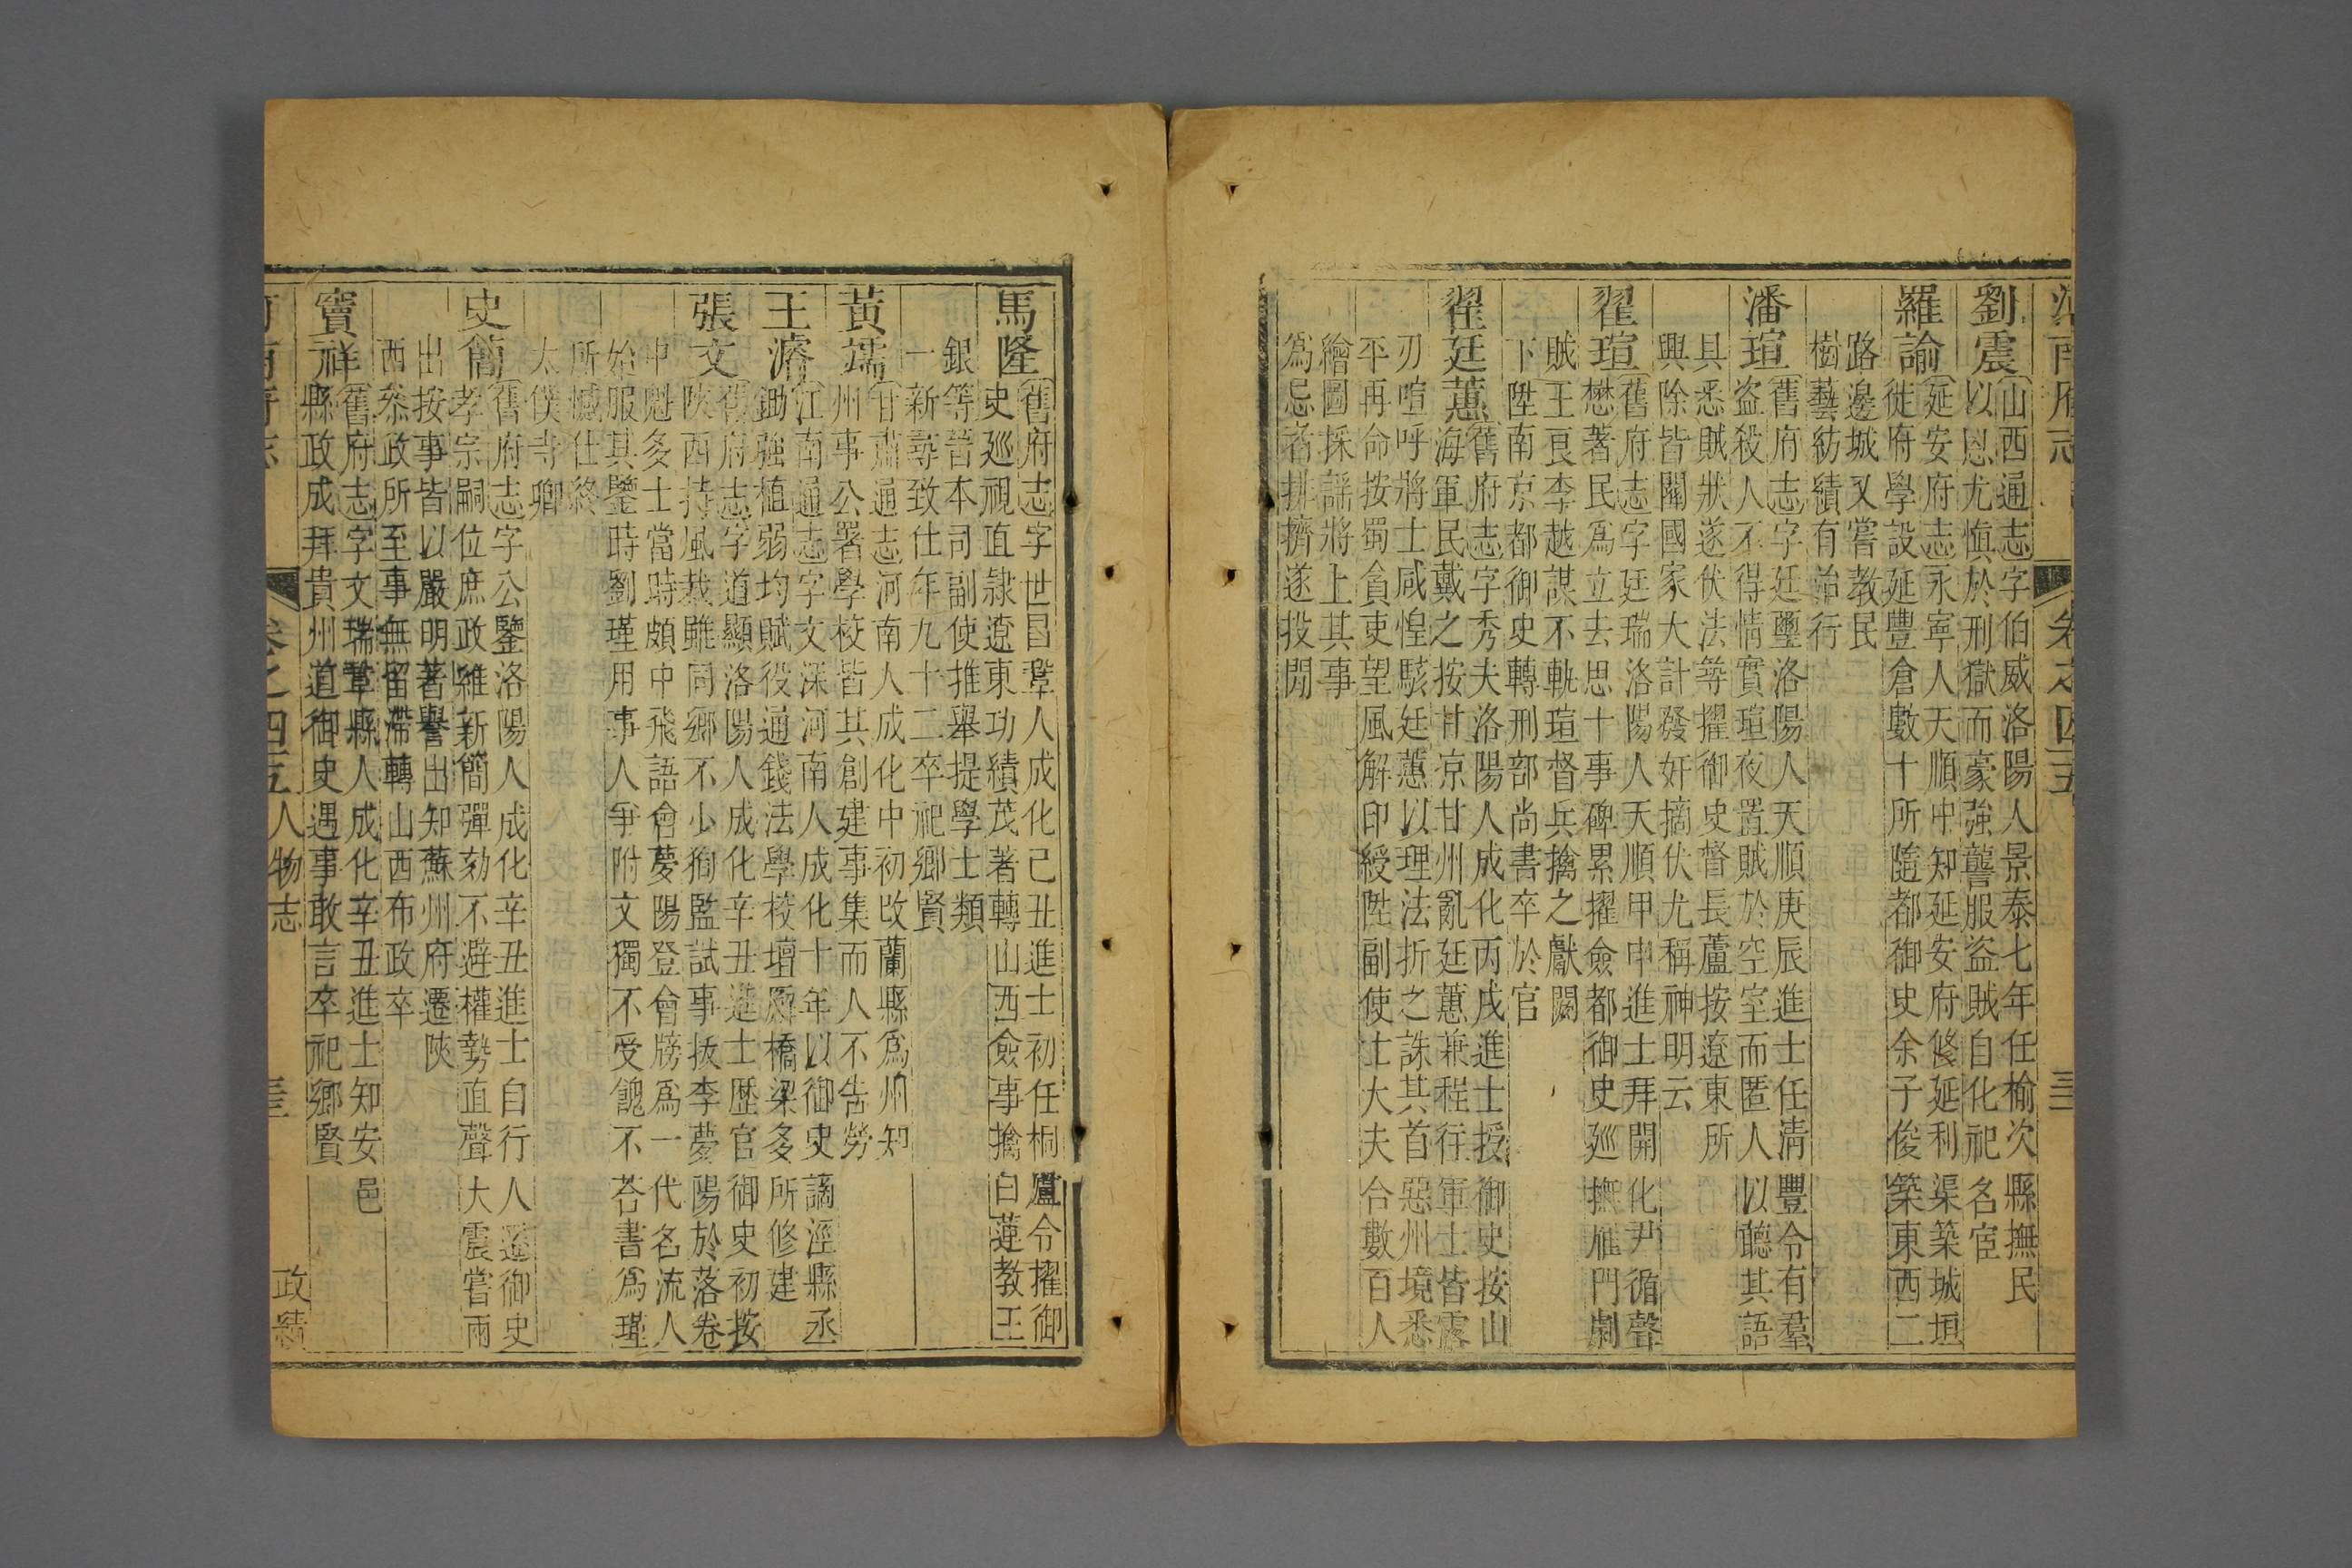 河南府志 卷之四五 三
劉震
山西通志字伯威洛陽人景泰七年任榆次縣撫民
以恩尤愼於刑獄而豪強讋服盜賊自化祀名宦
羅諭
延安府志永寧人天順中知延安府修延利渠築城垣
徙府學設延豐倉數十所隨都御史余子俊築東西二
路邊城又嘗教民
樹藝紡績有治行
潘瑄
舊府志字廷璽洛陽人天順庚辰進士任淸豐令有羣
盜殺人不得情實瑄夜置賊於空室而匿人以聽其語
具悉賊狀遂伏法等擢御史督長蘆按遼東所
興除皆關國家大計發奸摘伏尤稱神明云
翟瑄
舊府志字廷瑞洛陽人天順甲申進士拜開化尹循聲
懋著民爲立去思十事碑累擢僉都御史廵撫雁門劇
賊王良李越謀不軌瑄督兵擒之獻闕
下陞南京都御史轉刑部尚書卒於官
翟廷蕙
舊府志字秀夫洛陽人成化丙戌進士授御史按山
海軍民戴之按甘凉甘州亂廷蕙兼程行軍士皆露
刃喧呼將士咸惶駭廷蕙以理法折之誅其首惡州境悉
平再命按蜀貪吏望風解印綬陞副使士大夫合數百人
繪圖採謠將上其事
爲忌者排擠遂投閒
馬隆
舊府志字世昌鞏人成化己丑進士初任桐廬令擢御
史廵視直隷遼東功績茂著轉山西僉事擒白蓮教王
銀等晉本司副使推舉提學士類
一新尋致仕年九十二卒祀鄉賢
黃㼷
甘肅通志河南人成化中初改蘭縣爲州知
州事公署學校皆其創建事集而人不告勞
王濬
江南通志字文深河南人成化十年以御史謫涇縣丞
鋤強植弱均賦役通錢法學校壇廟橋梁多所修建
張文
舊府志字道顯洛陽人成化辛丑進士歷官御史初按
陝西持風裁雖同鄉不少狥監試事拔李夢陽於落卷
中魁多士當時頗中飛語會夢陽登會牓爲一代名流人
始服其鑒時劉瑾用事人爭附文獨不受餽不荅書爲瑾
所憾仕終
太僕寺卿
史簡
舊府志字公鑒洛陽人成化辛丑進士自行人選御史
孝宗嗣位庶政維新簡彈劾不避權勢直聲大震嘗兩
出按事皆以嚴明著譽出知蘇州府遷陝
西叅政所至事無留滯轉山西布政卒
竇祥
舊府志字文瑞鞏縣人成化辛丑進士知安邑
縣政成拜貴州道御史遇事敢言卒祀鄉賢
河南府志 卷之四五 人物志 三 政績